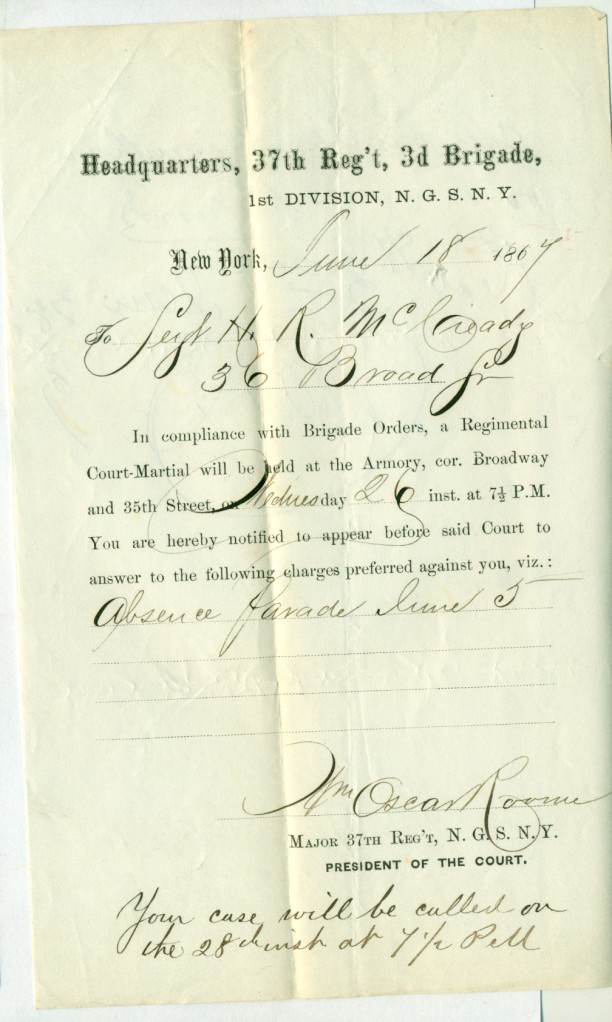 Headquarters, 37th Reg't, 3d Brigade,
1st DIVISION, N. G. S. N. Y.
New York, June 18 1867
To Sergt H. R. McCready
36 Broad St
In compliance with Brigade Orders, a Regimental
Court-Martial will be held at the Armory, cor. Broadway
and 35th Street, on Wednesday 26 inst. at 7½ P.M.
You are hereby notified to appear before said Court to
answer to the following charges preferred against you, viz.:
Absence Parade June 5
Wm Oscar Roome
MAJOR 37TH REG'T, N. G. S. N. Y.
PRESIDENT OF THE COURT.
Your case will be called on
the 28th inst at 7½ PM